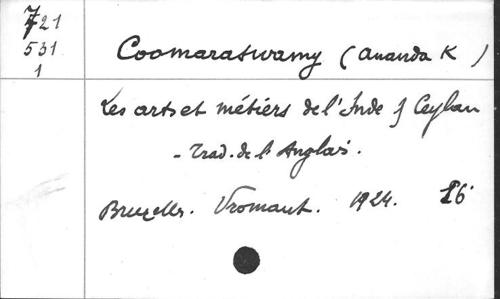 7421
531
1
Coomaraswamy (Ananda K )
Les arts et métiers de l'Inde & Ceylan
- Trad. de l'Anglais.
Bruxelles. Vromant. 1924. 16